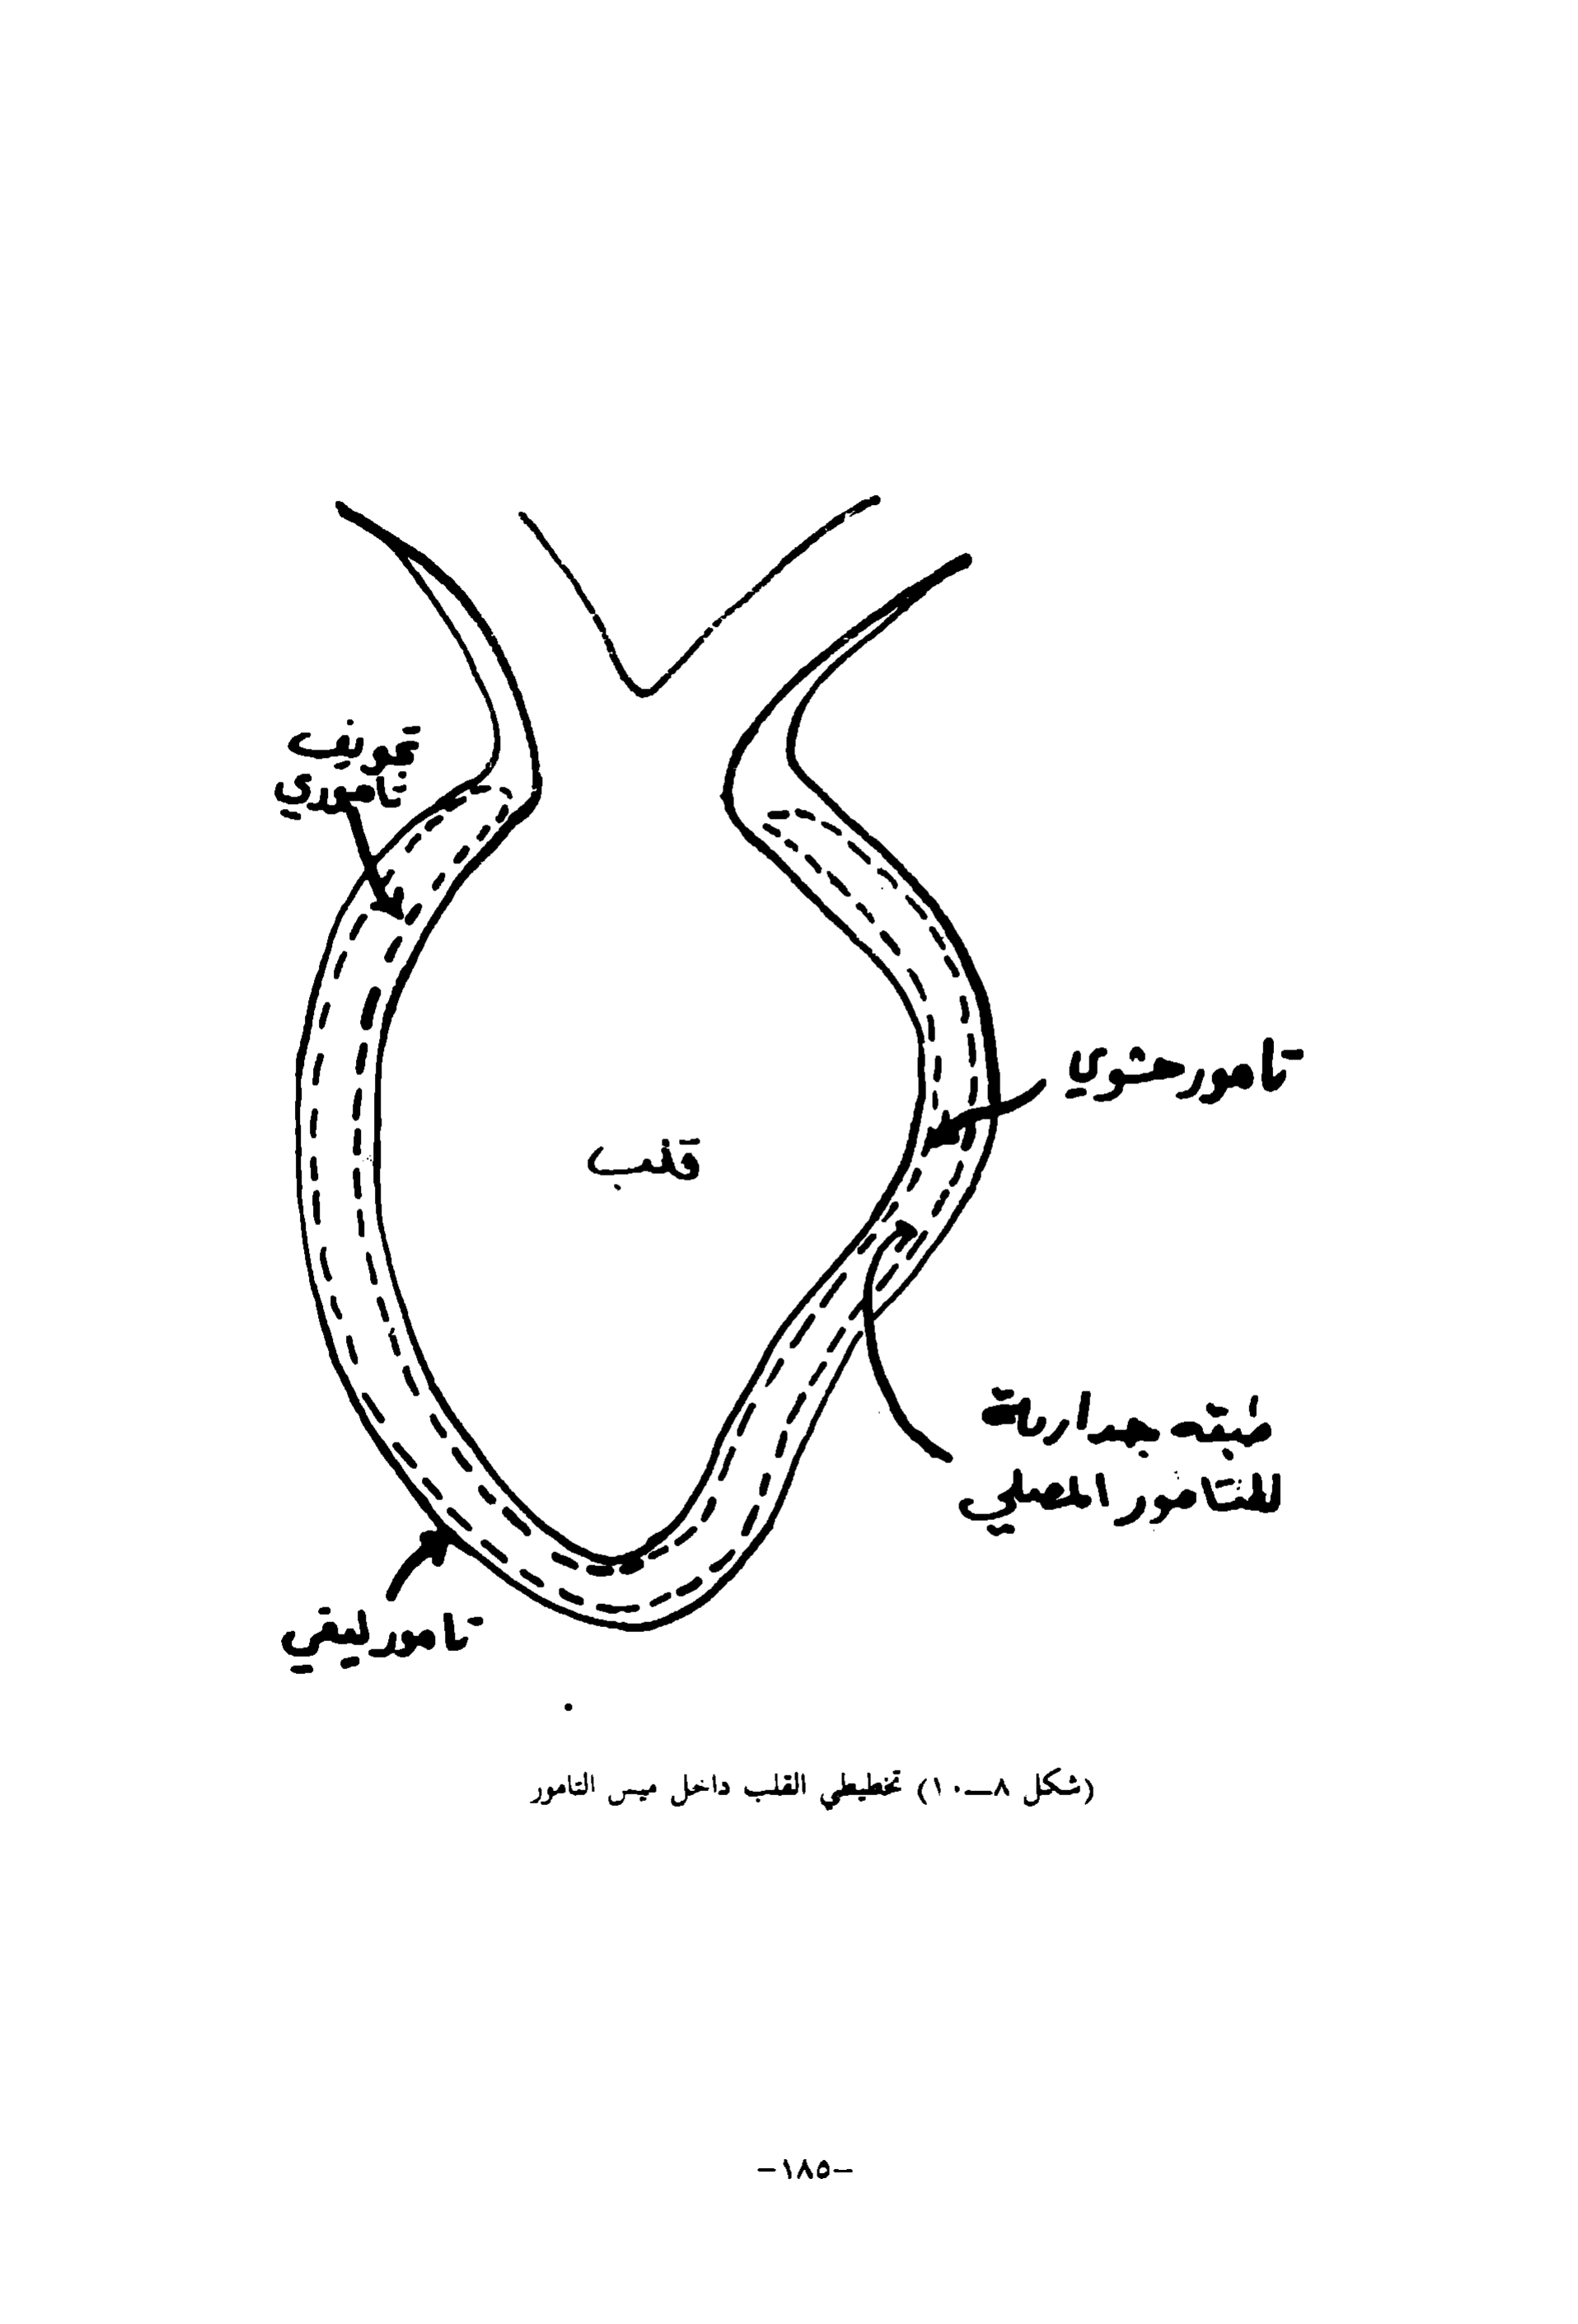 تجويف
تاموري
تامور حشوي
قلب
طبقة جدارية
للتامور المصلي
تامور ليفي
(شكل ٨—١٠) تخطيطي القلب داخل ميس التامور
-١٨٥-